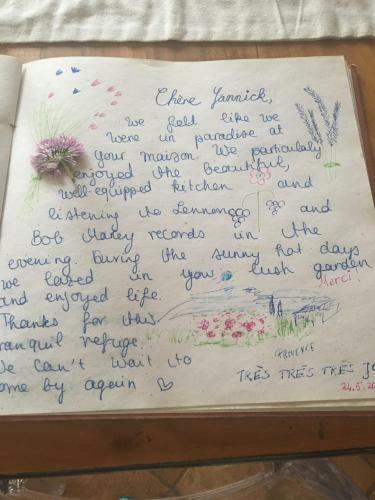 Chère Yannick,
We felt like we
were in paradise at
your maison. We particulaly
enjoyed the beautiful,
well-equipped kitchen and
listening to Lennon and
Bob Marley records in the
evening. During the sunny hot days
we lazed in you lush garden
and enjoyed life. Merci!
Thanks for this
tranquil refuge.
We can't wait to
PROVENCE
come by again ♡
TRÈS TRÈS TRÈS
24.5.20